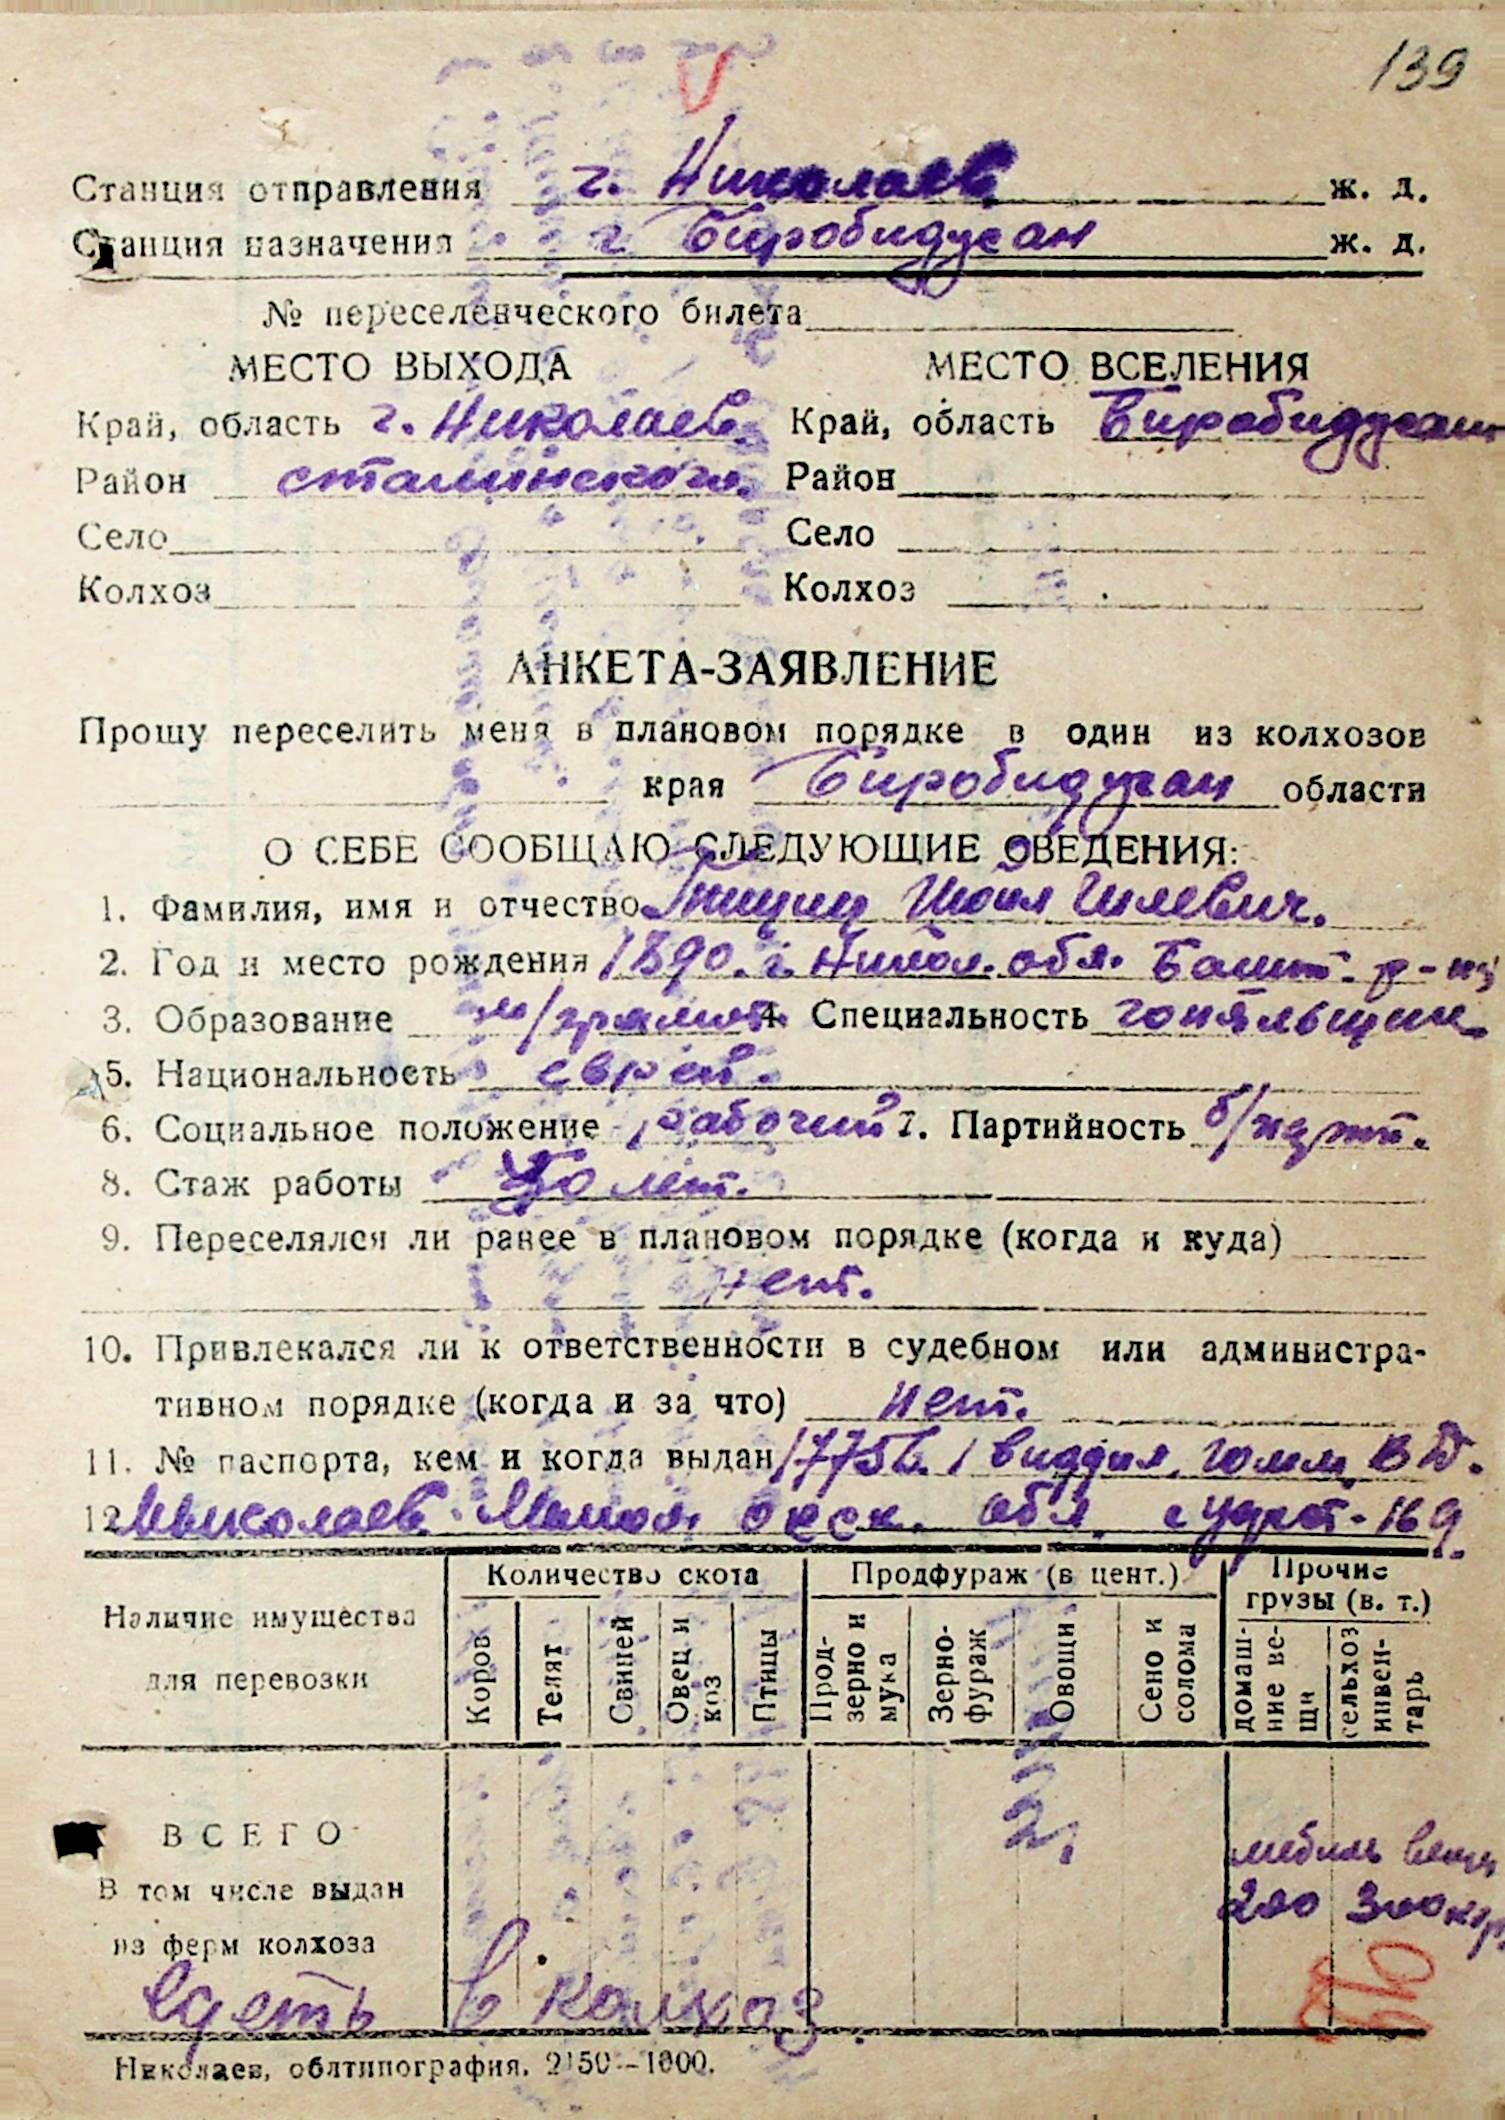 139
Станция отправления г. Николаев ж. д.
Станция назначения г Биробиджан ж. д.
№ переселенческого билета
МЕСТО ВЫХОДА МЕСТО ВСЕЛЕНИЯ
Край, область г. Николаев. Край, область Биробиджан
Район сталинского. Район
Село Село
Колхоз Колхоз
АНКЕТА-ЗАЯВЛЕНИЕ
Прошу переселить меня в плановом порядке в один из колхозов
края Биробиджан области
О СЕБЕ СООБЩАЮ СЛЕДУЮЩИЕ СВЕДЕНИЯ:
1. Фамилия, имя и отчество
2. Год и место рождения 1890. г. Никол. обл. Башт. р-н
3. Образование м/грамот. 4. Специальность
5. Национальность еврей.
6. Социальное положение рабочий 7. Партийность б/парт.
8. Стаж работы лет.
9. Переселялся ли ранее в плановом порядке (когда и куда)
нет.
10. Привлекался ли к ответственности в судебном или администра-
тивном порядке (когда и за что) нет.
11. № паспорта, кем и когда выдан
12. Николаев.
Наличие имущества для перевозки
Количество скота Продфураж (в цент.) Прочие грузы (в. т.)
Коров Телят Свиней Овец и коз Птицы Прод-зерно и мука Зерно-фураж Овощи Сено и солома домаш-ние ве-щи сельхоз инвен-тарь
ВСЕГО 2, вещи
В том числе выдан 200 300 кгр.
из ферм колхоза
едеть в колхоз.
Николаев, облтипография. 2150—1000.